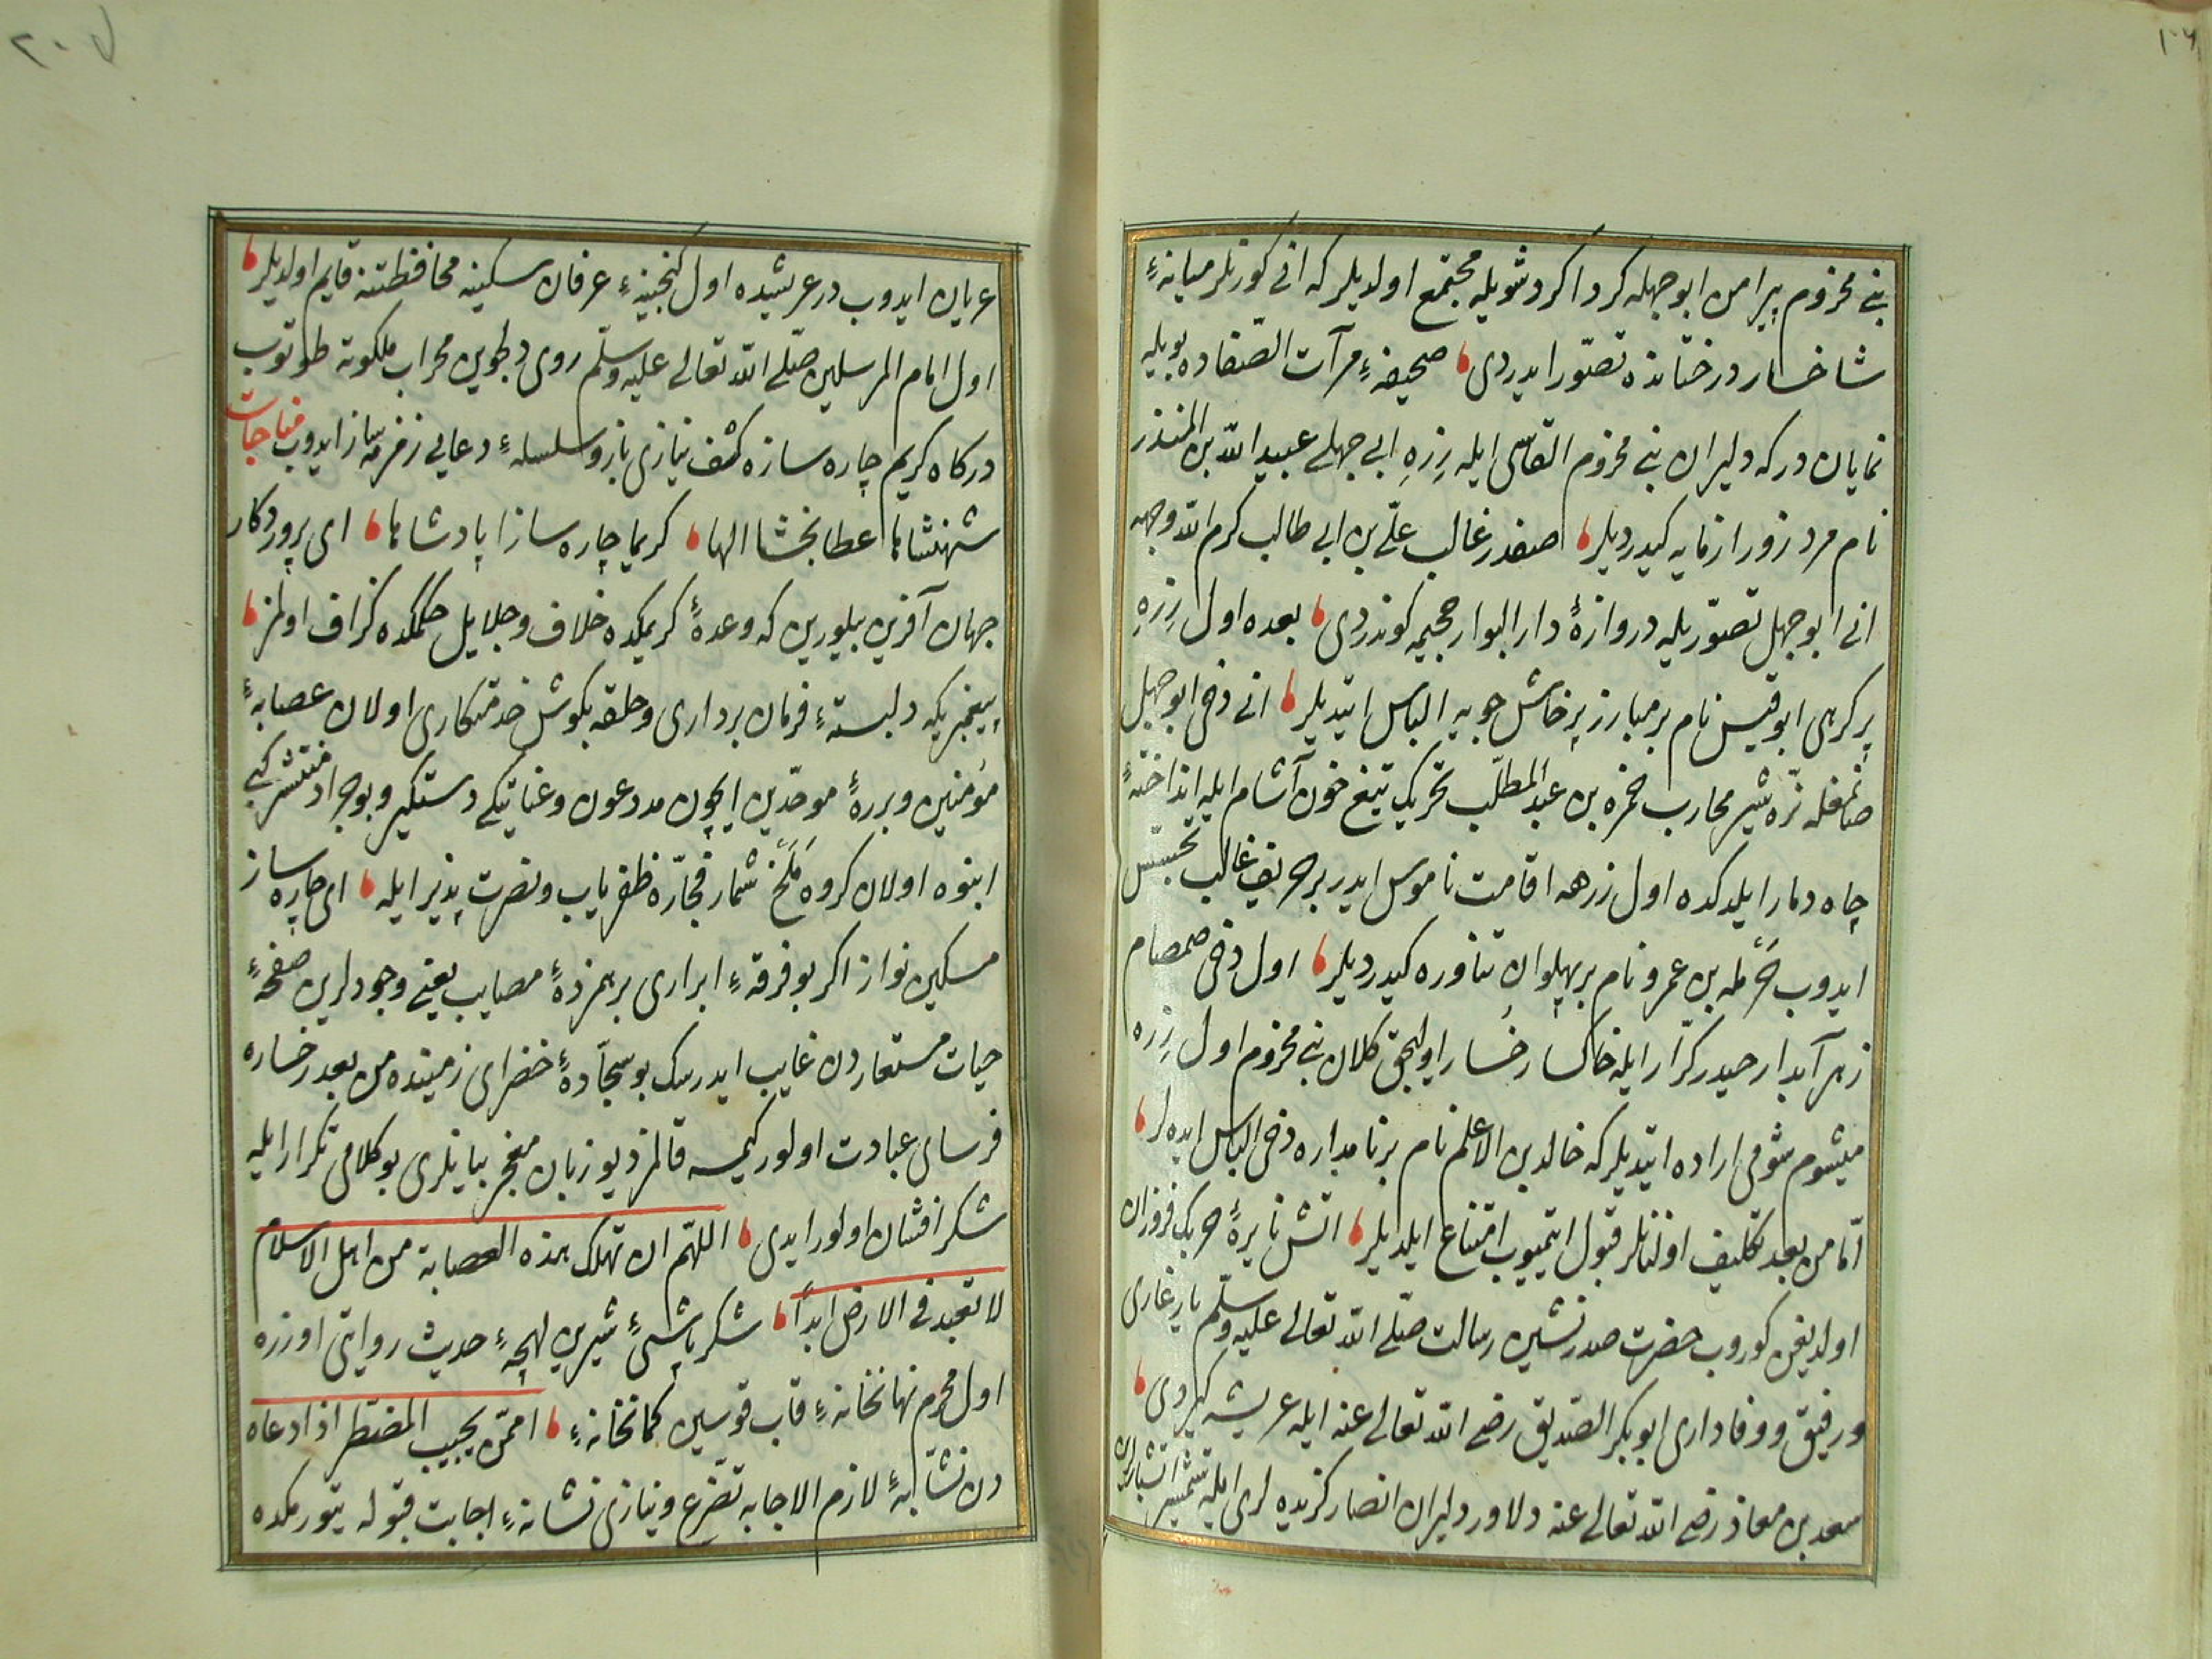 ١٠٦
بنے مخزوم پیرامن ابوجهله كرداكرد شویله مجتمع اولدیلر كه انی كورنلر میانهٔ
شاخسار درختانده تصوّر ایدردی صحیفهٔ مرآت الصّفاده بویله
نمایان در كه دلیران بنے مخزوم القاسی ایله زرهِ ابی جهلے عبید اللّه بن المنذر
نام مرد زور ازمایه كیدردیلر صفدر غالب علّے بن ابی طالب كرم اللّه وجهه
انے ابوجهل تصوّریله دروازهٔ دار البوار جحیمه كوندردی بعده اول زرهِ
پر كرهی ابوقیس نام بر مبارز پرخاش جویه الباس ایتدیلر انے دخی ابوجهل
صانمغله نرّه شیر محارب حمزه بن عبد المطلّب تحریك تیغ خون آشام ایله انداختهٔ
چاه دمار ایلدكده اول زرهه اقامت ناموس ایدر بر حریف غالب تجسّس
ایدوب حرمله بن عمرو نام بر پهلوان تناوره كیدردیلر اول دخی صمصام
زهر آبدار حیدر كرّار ایله خاكسار خسار اولیجق كلان بنے مخزوم اول زره
میشوم شومی اراده ایتدیلر كه خالد بن الاعلم نام بر نامداره دخی الباس ایده لر
امّا من بعد تكلیف اولنانلر قبول ایتمیوب امتناع ایلدیلر اتش نایرهٔ حربك فروزان
اولدیغن كوروب حضرت صدر نشین رسالت صلّے اللّه تعالے علیه وسلّم یار غاری
و رفیق و وفاداری ابوبكر الصّدیق رضے اللّه تعالے عنه ایله عریشه كیردی
سعد بن معاذ رضے اللّه تعالے عنه دلاور دلیران انصار كزیده لری ایله شمشیر اتشبارلرین
٢٠٧
عریان ایدوب در عریشیده اول كنجینهٔ عرفان سكینه محافظتنه قایم اولدیلر
اول امام المرسلین صلّے اللّه تعالے علیه وسلّم روی دلجوین محراب ملكوته طوتوب
دركاه كریم چاره سازه كشف نیازی نازو سلسلهٔ دعایی زمزمه ساز ایدوب مناجات
شهنشاها عطابخشا الها كریما چاره سازا پادشاها ای پروردكار
جهان آفرین بیلورین كه وعدهٔ كریمكده خلاف و جلایل حكمكده كزاف اولمز
پیغمبریكه دلبستهٔ فرمان برداری و حلقه بكوش خدمتكاری اولان عصابهٔ
مؤمنین و بررهٔ موحّدین ایچون مدد عون و عنایتكی دستكیر و بو جراد منتشر كبی
انبوه اولان كروه ملخ شمار فجّاره ظفریاب و نصرت پذیر ایله ای چاره ساز
مسكین نواز اكر بو فرقهٔ ابراری بر همزدهٔ مصایب یعنے وجودلرین صفحهٔ
حیات مستعاردن غایب ایدرسك بو سجّادهٔ خضرای زمینده من بعد رخساره
فرسای عبادت اولور كیمسه قالمز دیو زبان معجز بیانلری بو كلامی تكرار ایله
شكر افشان اولور ایدی اللّهم ان تهلك هذه العصابة من اهل الاسلام
لا تعبد فی الارض ابداً شكرپاشئ شیرین لهجهٔ حدیث روایتی اوزره
اول محرم نهانخانهٔ قاب قوسین كمانخانهٔ امّن یجیب المضطر اذا دعاه
دن نشّابهٔ لازم الاجابه تضرع و نیازی نشانهٔ اجابت قبوله یتورمكده